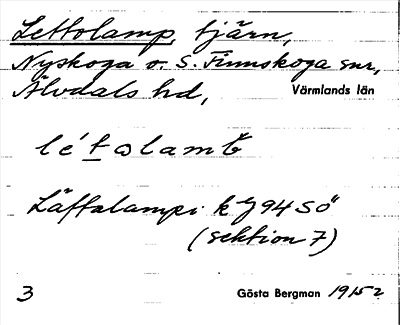 Lettolamp, tjärn,
Nyskoga o. S. Finnskoga snr,
Älvdals hd, Värmlands län
Läffalampi kg 94 SÖ
(sektion 7)
3 Gösta Bergman 1915 2